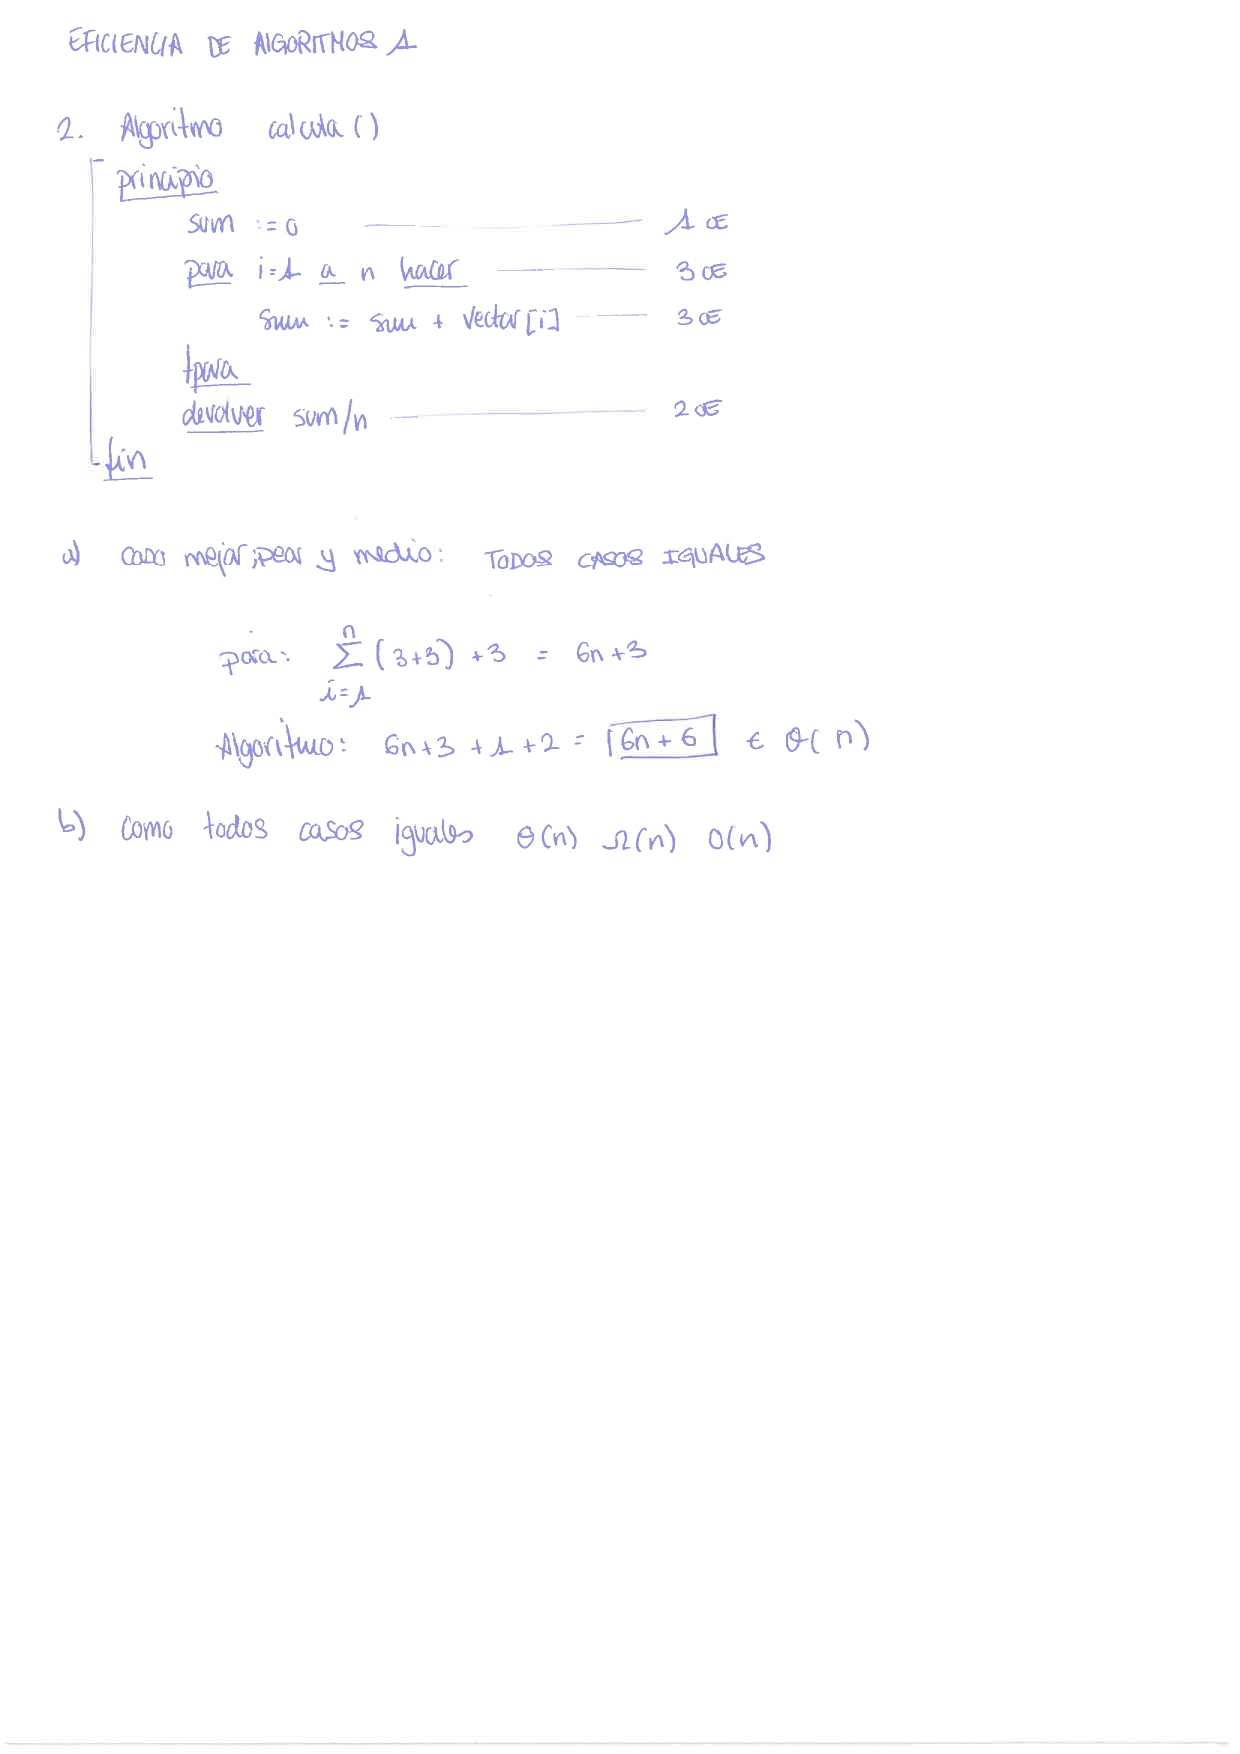 EFICIENCIA DE ALGORITMOS 1
2. Algoritmo calcula ()
principio
sum := 0 1 OE
para i=1 a n hacer 3 OE
sum := sum + vector [i] 3 OE
fpara
devolver sum/n 2 OE
fin
a) caso mejor, peor y medio: TODOS CASOS IGUALES
para: n∑i=1 (3+3) +3 = 6n+3
Algoritmo: 6n+3 +1 +2 = 6n + 6 ∈ Θ( n )
b) como todos casos iguales Θ(n) Ω(n) O(n)